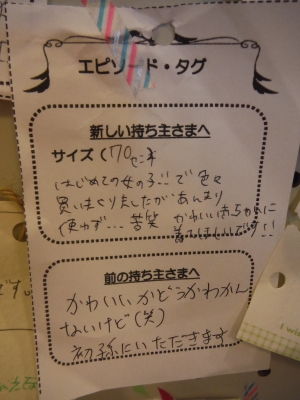 エピソード・タグ
新しい持ち主さまへ
サイズ(70cm)
はじめての女の子!!で色々
買いまくりましたがあんまり
使わず…苦笑 かわいいあちゃんに
着てほしいです!!
前の持ち主さまへ
かわいいかどうかわかん
ないけど(笑)
初孫にいただきます
です。
I w